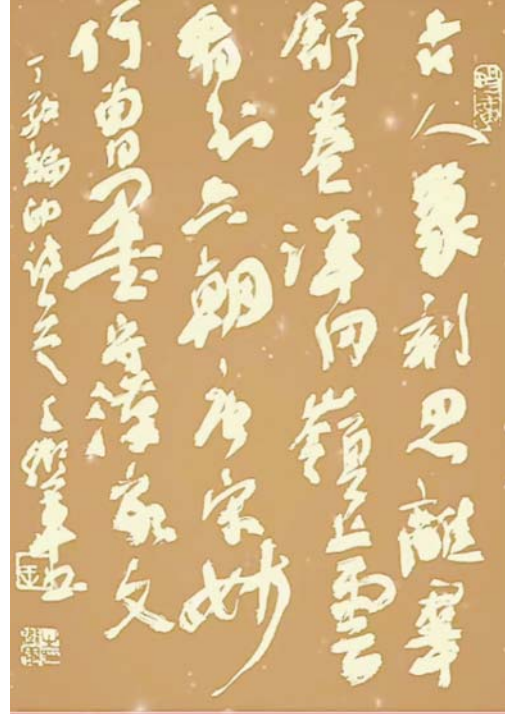 古人篆刻思離羣
舒卷渾同嶺上雲
看到六朝唐宋妙
何曾墨守漢家文
丁敬論印詩